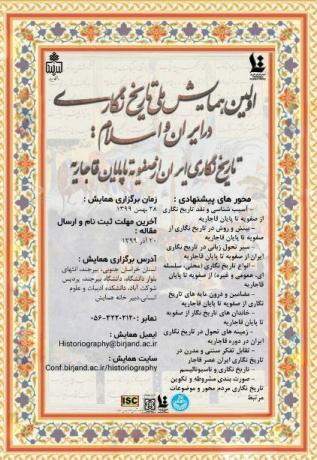 اولین همایش ملی تاریخ نگاری
در ایران و اسلام:
تاریخ نگاری ایران از صفویه تا پایان قاجاریه
محور های پیشنهادی :
- آسیب شناسی و نقد تاریخ نگاری
از صفویه تا پایان قاجاریه
- بینش و روش در تاریخ نگاری از
صفویه تا پایان قاجاریه
- سیر تحول زبانی در تاریخ نگاری
ایران از صفویه تا پایان قاجاریه
- انواع تاریخ نگاری (محلی، سلسله
ای، عمومی و غیره) از صفویه تا پایان
قاجاریه
- مضامین و درون مایه های تاریخ
نگاری از صفویه تا پایان قاجاریه
- خاندان های تاریخ نگار از صفویه
تا پایان قاجاریه
- زمینه های تحول در تاریخ نگاری
ایران در دوره قاجاریه
- تقابل تفکر سنتی و مدرن در
تاریخ نگاری ایران عصر قاجار
- تاریخ نگاری و ناسیونالیسم
- صورت بندی مشروطه و تکوین
تاریخ نگاری مردم محور و موضوعات
مرتبط
زمان برگزاری همایش :
۲۸ بهمن ۱۳۹۹
آخرین مهلت ثبت نام و ارسال
مقاله :
۲۰ آذر ۱۳۹۹
آدرس برگزاری همایش :
استان خراسان جنوبی، بیرجند، انتهای
بلوار دانشگاه، دانشگاه بیرجند، پردیس
شوکت آباد، دانشکده ادبیات و علوم
انسانی دبیر خانه همایش
نمابر : ۰۵۶-۳۲۲۰۲۱۲۰
ایمیل همایش :
Historiography@birjand.ac.ir
سایت همایش :
Conf.birjand.ac.ir/historiography
ISC